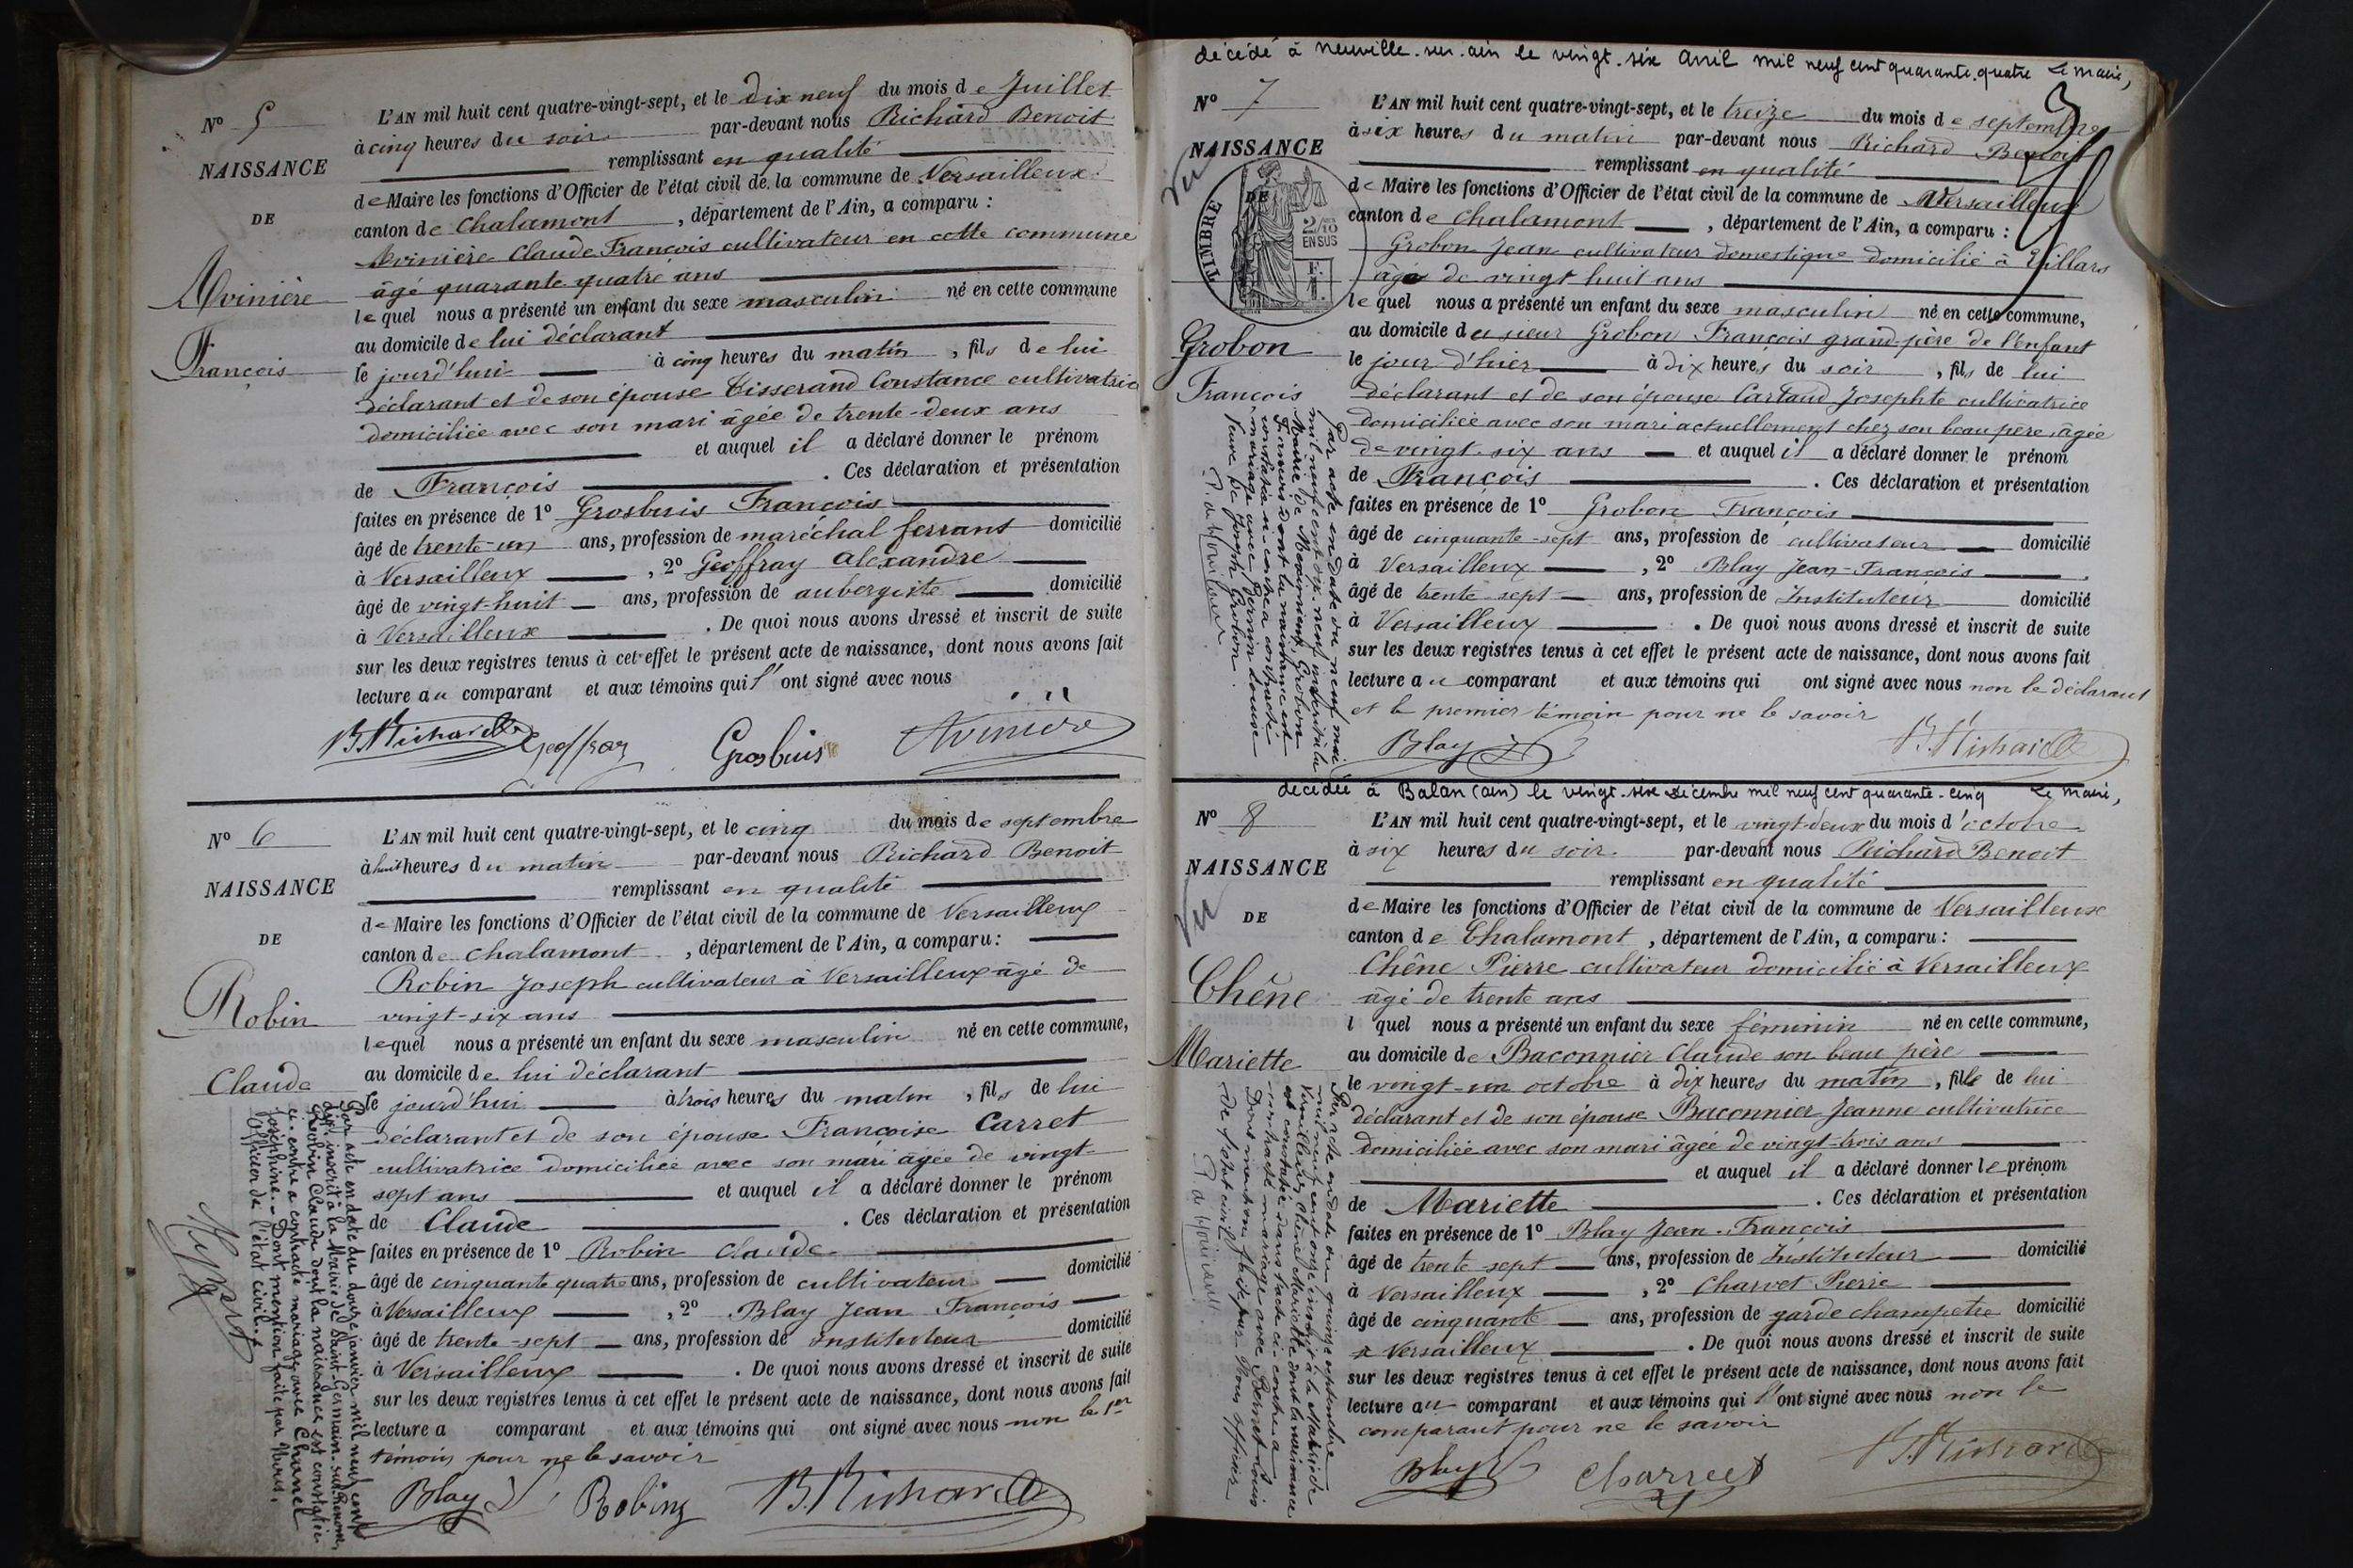 N° 5
NAISSANCE
DE
Avinière
François
L'AN mil huit cent quatre-vingt-sept, et le dix neuf du mois de Juillet
à cinq heures du soir par-devant nous Richard Benoit
remplissant en qualité
de Maire les fonctions d'Officier de l'état civil de la commune de Versailleux
canton de Chalamont, département de l'Ain, a comparu :
Avinière Claude François cultivateur en cette commune
âgé quarante quatre ans
lequel nous a présenté un enfant du sexe masculin né en cette commune
au domicile de lui déclarant
le jourd'hui à cinq heures du matin, fils de lui
déclarant et de son épouse Tisserand Constance cultivatrice
domiciliée avec son mari âgée de trente-deux ans
et auquel il a déclaré donner le prénom
de François. Ces déclaration et présentation
faites en présence de 1° Grosbuis François
âgé de trente-un ans, profession de maréchal ferrant domicilié
à Versailleux, 2° Geoffray Alexandre
âgé de vingt-huit ans, profession de aubergiste domicilié
à Versailleux. De quoi nous avons dressé et inscrit de suite
sur les deux registres tenus à cet effet le présent acte de naissance, dont nous avons fait
lecture au comparant et aux témoins qui l'ont signé avec nous
B. Richard Geoffray Grosbuis Avinière
N° 6
NAISSANCE
DE
Robin
Claude
L'AN mil huit cent quatre-vingt-sept, et le cinq du mois de septembre
à huit heures du matin par-devant nous Richard Benoit
remplissant en qualité
de Maire les fonctions d'Officier de l'état civil de la commune de Versailleux
canton de Chalamont, département de l'Ain, a comparu :
Robin Joseph cultivateur à Versailleux âgé de
vingt-six ans
lequel nous a présenté un enfant du sexe masculin né en cette commune,
au domicile de lui déclarant
le jourd'hui à trois heures du matin, fils de lui
déclarant et de son épouse Françoise Carret
cultivatrice domiciliée avec son mari âgée de vingt-
sept ans et auquel il a déclaré donner le prénom
de Claude. Ces déclaration et présentation
faites en présence de 1° Robin Claude
âgé de cinquante quatre ans, profession de cultivateur domicilié
à Versailleux, 2° Blay Jean François
âgé de trente-sept ans, profession de instituteur domicilié
à Versailleux. De quoi nous avons dressé et inscrit de suite
sur les deux registres tenus à cet effet le présent acte de naissance, dont nous avons fait
lecture a comparant et aux témoins qui ont signé avec nous non le 1er
témoin pour ne le savoir
Blay Robin B. Richard
Par acte en date du douze janvier mil neuf cent
dix, inscrit à la Mairie de Saint-Germain-sur-Renom,
Robin Claude dont la naissance est constatée
ci-contre a contracté mariage avec Chanel
Joséphine. - Dont mention faite par Nous,
Officier de l'état civil.
décédé à Neuville-sur-ain le vingt-six Avril mil neuf cent quarante-quatre Le maire,
N° 7
NAISSANCE
DE
TIMBRE
2/10 EN SUS
Vu
Grobon
François
L'AN mil huit cent quatre-vingt-sept, et le treize du mois de septembre
à six heures du matin par-devant nous Richard Benoit
remplissant en qualité
de Maire les fonctions d'Officier de l'état civil de la commune de Versailleux
canton de Chalamont, département de l'Ain, a comparu :
Grobon Jean cultivateur domestique domicilié à Villars
âgé de vingt huit ans
lequel nous a présenté un enfant du sexe masculin né en cette commune,
au domicile du sieur Grobon François grand-père de l'enfant
le jour d'hier à dix heures du soir, fils de lui
déclarant et de son épouse Cartaud Josephte cultivatrice
domiciliée avec son mari actuellement chez son beau père, âgée
de vingt-six ans et auquel il a déclaré donner le prénom
de François. Ces déclaration et présentation
faites en présence de 1° Grobon François
âgé de cinquante-sept ans, profession de cultivateur domicilié
à Versailleux, 2° Blay Jean-François
âgé de trente-sept ans, profession de Instituteur domicilié
à Versailleux. De quoi nous avons dressé et inscrit de suite
sur les deux registres tenus à cet effet le présent acte de naissance, dont nous avons fait
lecture au comparant et aux témoins qui ont signé avec nous non le déclarant
et le premier témoin pour ne le savoir
Blay B. Richard
Par acte en date du neuf mai
mil neuf cent dix neuf inscrit à la
Mairie de Grobon
François dont la naissance est
constatée ci-contre a contracté
mariage avec Louise
veuve de Joseph Grobon.
décédée à Balan (ain) le vingt-six décembre mil neuf cent quarante-cinq Le maire,
N° 8
NAISSANCE
DE
Vu
Chêne
Mariette
L'AN mil huit cent quatre-vingt-sept, et le vingt-deux du mois d'octobre
à six heures du soir par-devant nous Richard Benoit
remplissant en qualité
de Maire les fonctions d'Officier de l'état civil de la commune de Versailleux
canton de Chalamont, département de l'Ain, a comparu :
Chêne Pierre cultivateur domicilié à Versailleux
âgé de trente ans
l quel nous a présenté un enfant du sexe féminin né en cette commune,
au domicile de Baconnier Claude son beau père
le vingt-un octobre à dix heures du matin, fille de lui
déclarant et de son épouse Baconnier Jeanne cultivatrice
domiciliée avec son mari âgée de vingt-trois ans
et auquel il a déclaré donner le prénom
de Mariette. Ces déclaration et présentation
faites en présence de 1° Blay Jean-François
âgé de trente-sept ans, profession de Instituteur domicilié
à Versailleux, 2° Charvet Pierre
âgé de cinquante ans, profession de garde champetre domicilié
à Versailleux. De quoi nous avons dressé et inscrit de suite
sur les deux registres tenus à cet effet le présent acte de naissance, dont nous avons fait
lecture au comparant et aux témoins qui l'ont signé avec nous non le
comparant pour ne le savoir
Blay Charvet B. Richard
Par acte en date du quinze septembre
mil neuf cent onze inscrit à la Mairie de
Versailleux, Chêne Mariette dont la naissance
est constatée dans l'acte ci-contre a
contracté mariage avec Bornet Louis
Dont mention faite par Nous officier
de l'état civil